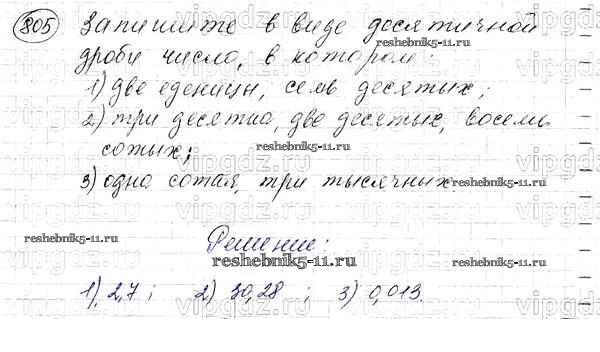 805 Запишите в виде десятичной
дроби число, в котором:
1) две еденицы, семь десятых;
2) три десятка, две десятых, восемь
сотых;
3) одна сотая, три тысячных.
Решение:
1) 2,7; 2) 30,28; 3) 0,013.
reshebnik5-11.ru
reshebnik5-11.ru
reshebnik5-11.ru
reshebnik5-11.ru
reshebnik5-11.ru
vipgdz.ru